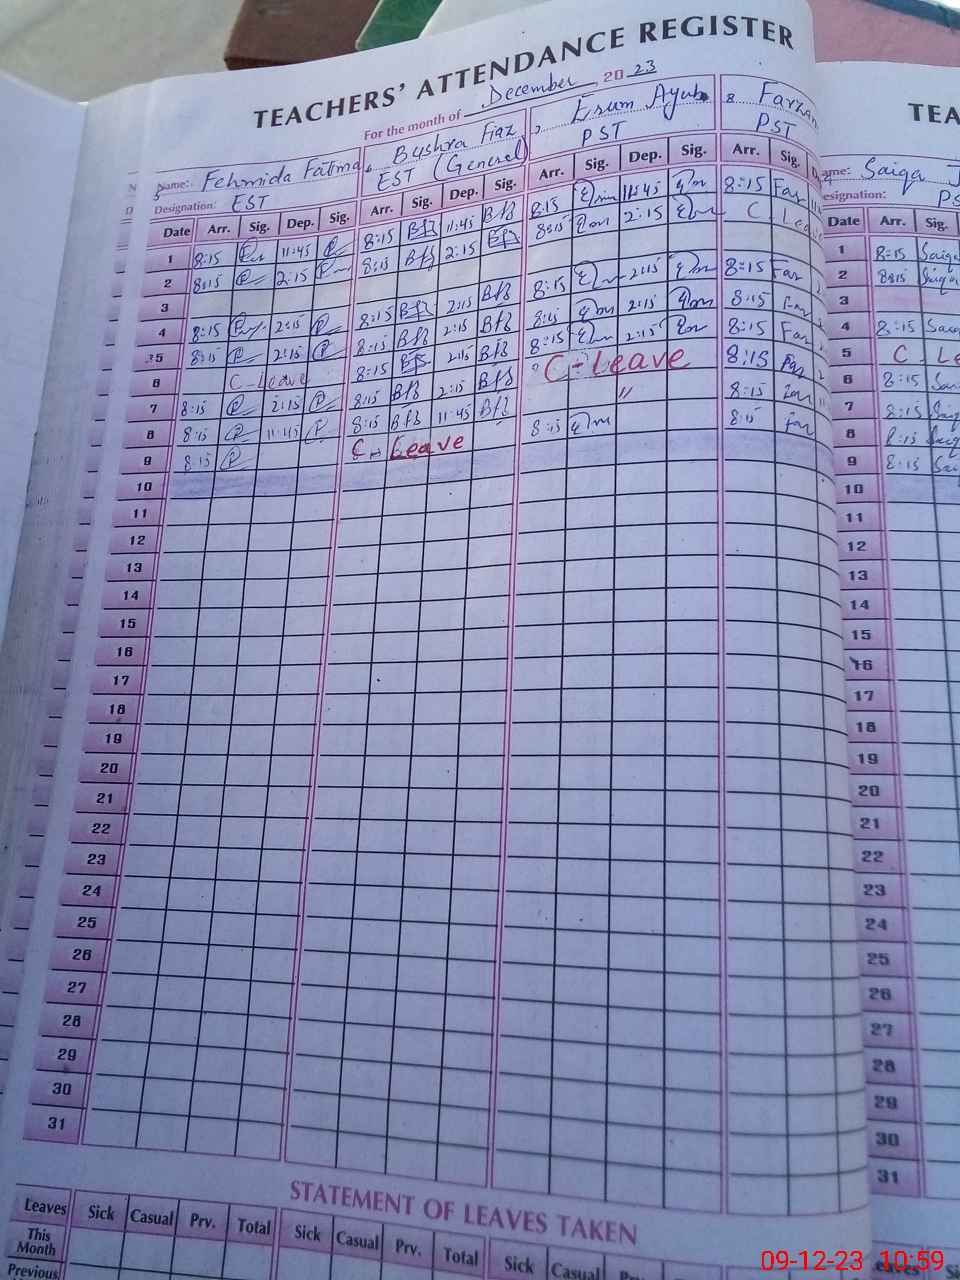 TEACHERS' ATTENDANCE REGISTER
For the month of December 2023
TEA
Name: Fehmida Fatima Bushra Fiaz Erum Ayub 8
Designation: EST EST (General) PST PST
ame: Saiqa
esignation: PS
Date Arr. Sig. Dep. Sig. Arr. Sig. Dep. Sig. Arr. Sig. Dep. Sig. Arr. Sig. D
Date Arr. Sig.
1 8:15 11:45 8:15 11:45 8:15 11:45 8:15 Far
2 8:15 2:15 8:15 2:15 8:15 2:15 C Leave
3
4 8:15 2:15 8:15 2:15 8:15 2:15 8:15 Far
5 8:15 2:15 8:15 2:15 8:15 2:15 8:15 Far
6 C-Leave 8:15 2:15 8:15 2:15 8:15 Far
7 8:15 2:15 8:15 2:15 C-Leave 8:15
8 8:15 11:45 8:15 11:45 " 8:15
9 8:15 C-Leave 8:15 8:15 Far
10
11
12
13
14
15
16
17
18
19
20
21
22
23
24
25
26
27
28
29
30
31
1 8:15 Saiqa
2 8:15 Saiqa
3
4 8:15
5 C Le
6 8:15
7 8:15
8 8:15
9 8:15 Sai
10
11
12
13
14
15
16
17
18
19
20
21
22
23
24
25
26
27
28
29
30
31
STATEMENT OF LEAVES TAKEN
Leaves Sick Casual Prv. Total Sick Casual Prv. Total Sick Casual
This
Month
Previous
09-12-23 10:59